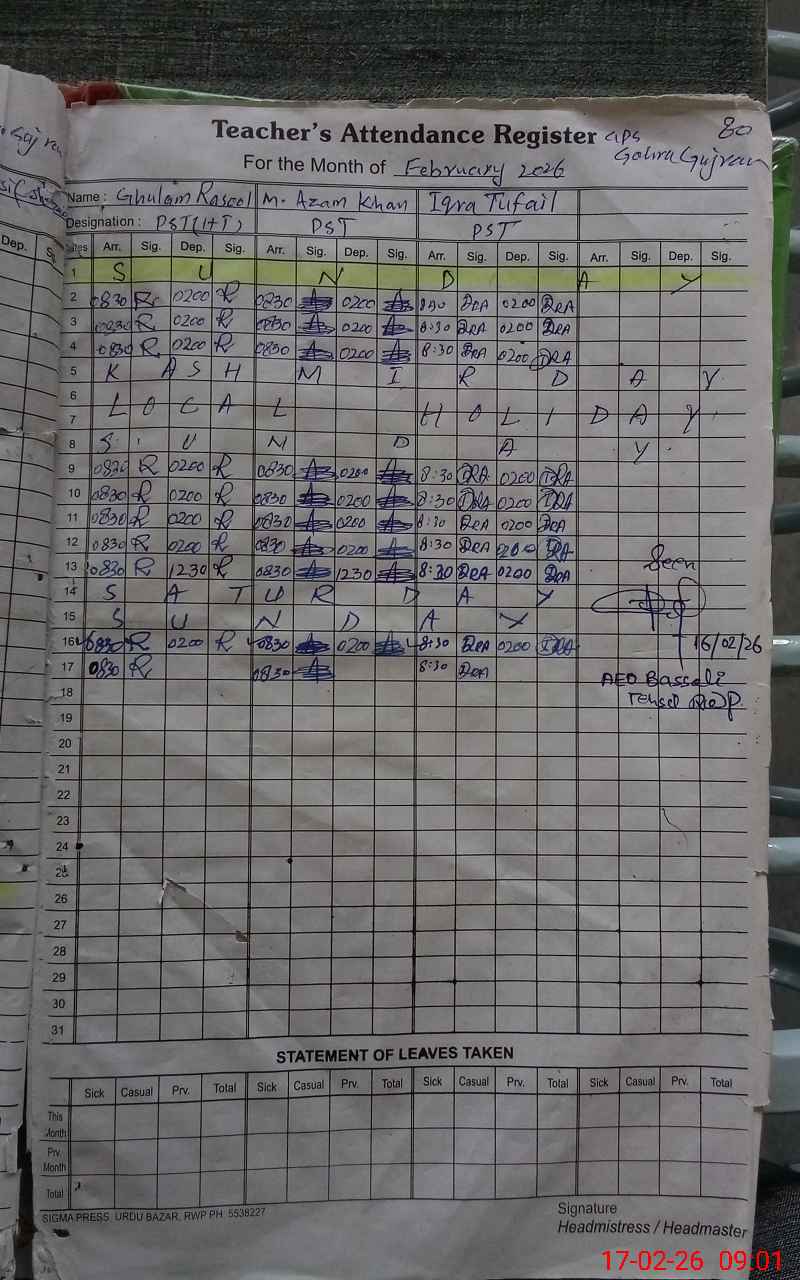 Teacher's Attendance Register GPS 80
Gohra Gujran
For the Month of February 2026
Name: Ghulam Rasool M. Azam Khan Iqra Tufail
Designation: PST(HT) PST PST
Dates Arr. Sig. Dep. Sig. Arr. Sig. Dep. Sig. Arr. Sig. Dep. Sig. Arr. Sig. Dep. Sig.
1 S U N D A Y
2 0830 R 0200 R 0830 0200 0200
3 0830 R 0200 R 0830 0200 8:30 0200
4 0830 R 0200 R 0830 0200 8:30 0200
5 K A S H M I R D A Y
6
7 L O C A L H O L I D A Y
8 S U N D A Y
9 0830 R 0200 R 0830 0200 8:30 0200
10 0830 R 0200 R 0830 0200 8:30 0200
11 0830 R 0200 R 0830 0200 8:30 0200
12 0830 R 0200 R 0830 0200 8:30 0200
13 0830 R 1230 R 0830 1230 8:30 0200
Seen
14 S A T U R D A Y
15 S U N D A Y
16 0830 R 0200 R 0830 0200 8:30 0200 16/02/26
17 0830 R 0830 8:30
AEO Bassali
Tehsil
18
19
20
21
22
23
24
25
26
27
28
29
30
31
STATEMENT OF LEAVES TAKEN
Sick Casual Prv. Total Sick Casual Prv. Total Sick Casual Prv. Total Sick Casual Prv. Total
This Month
Prv Month
Total
SIGMA PRESS URDU BAZAR, RWP PH 5538227
Signature
Headmistress / Headmaster
17-02-26 09:01